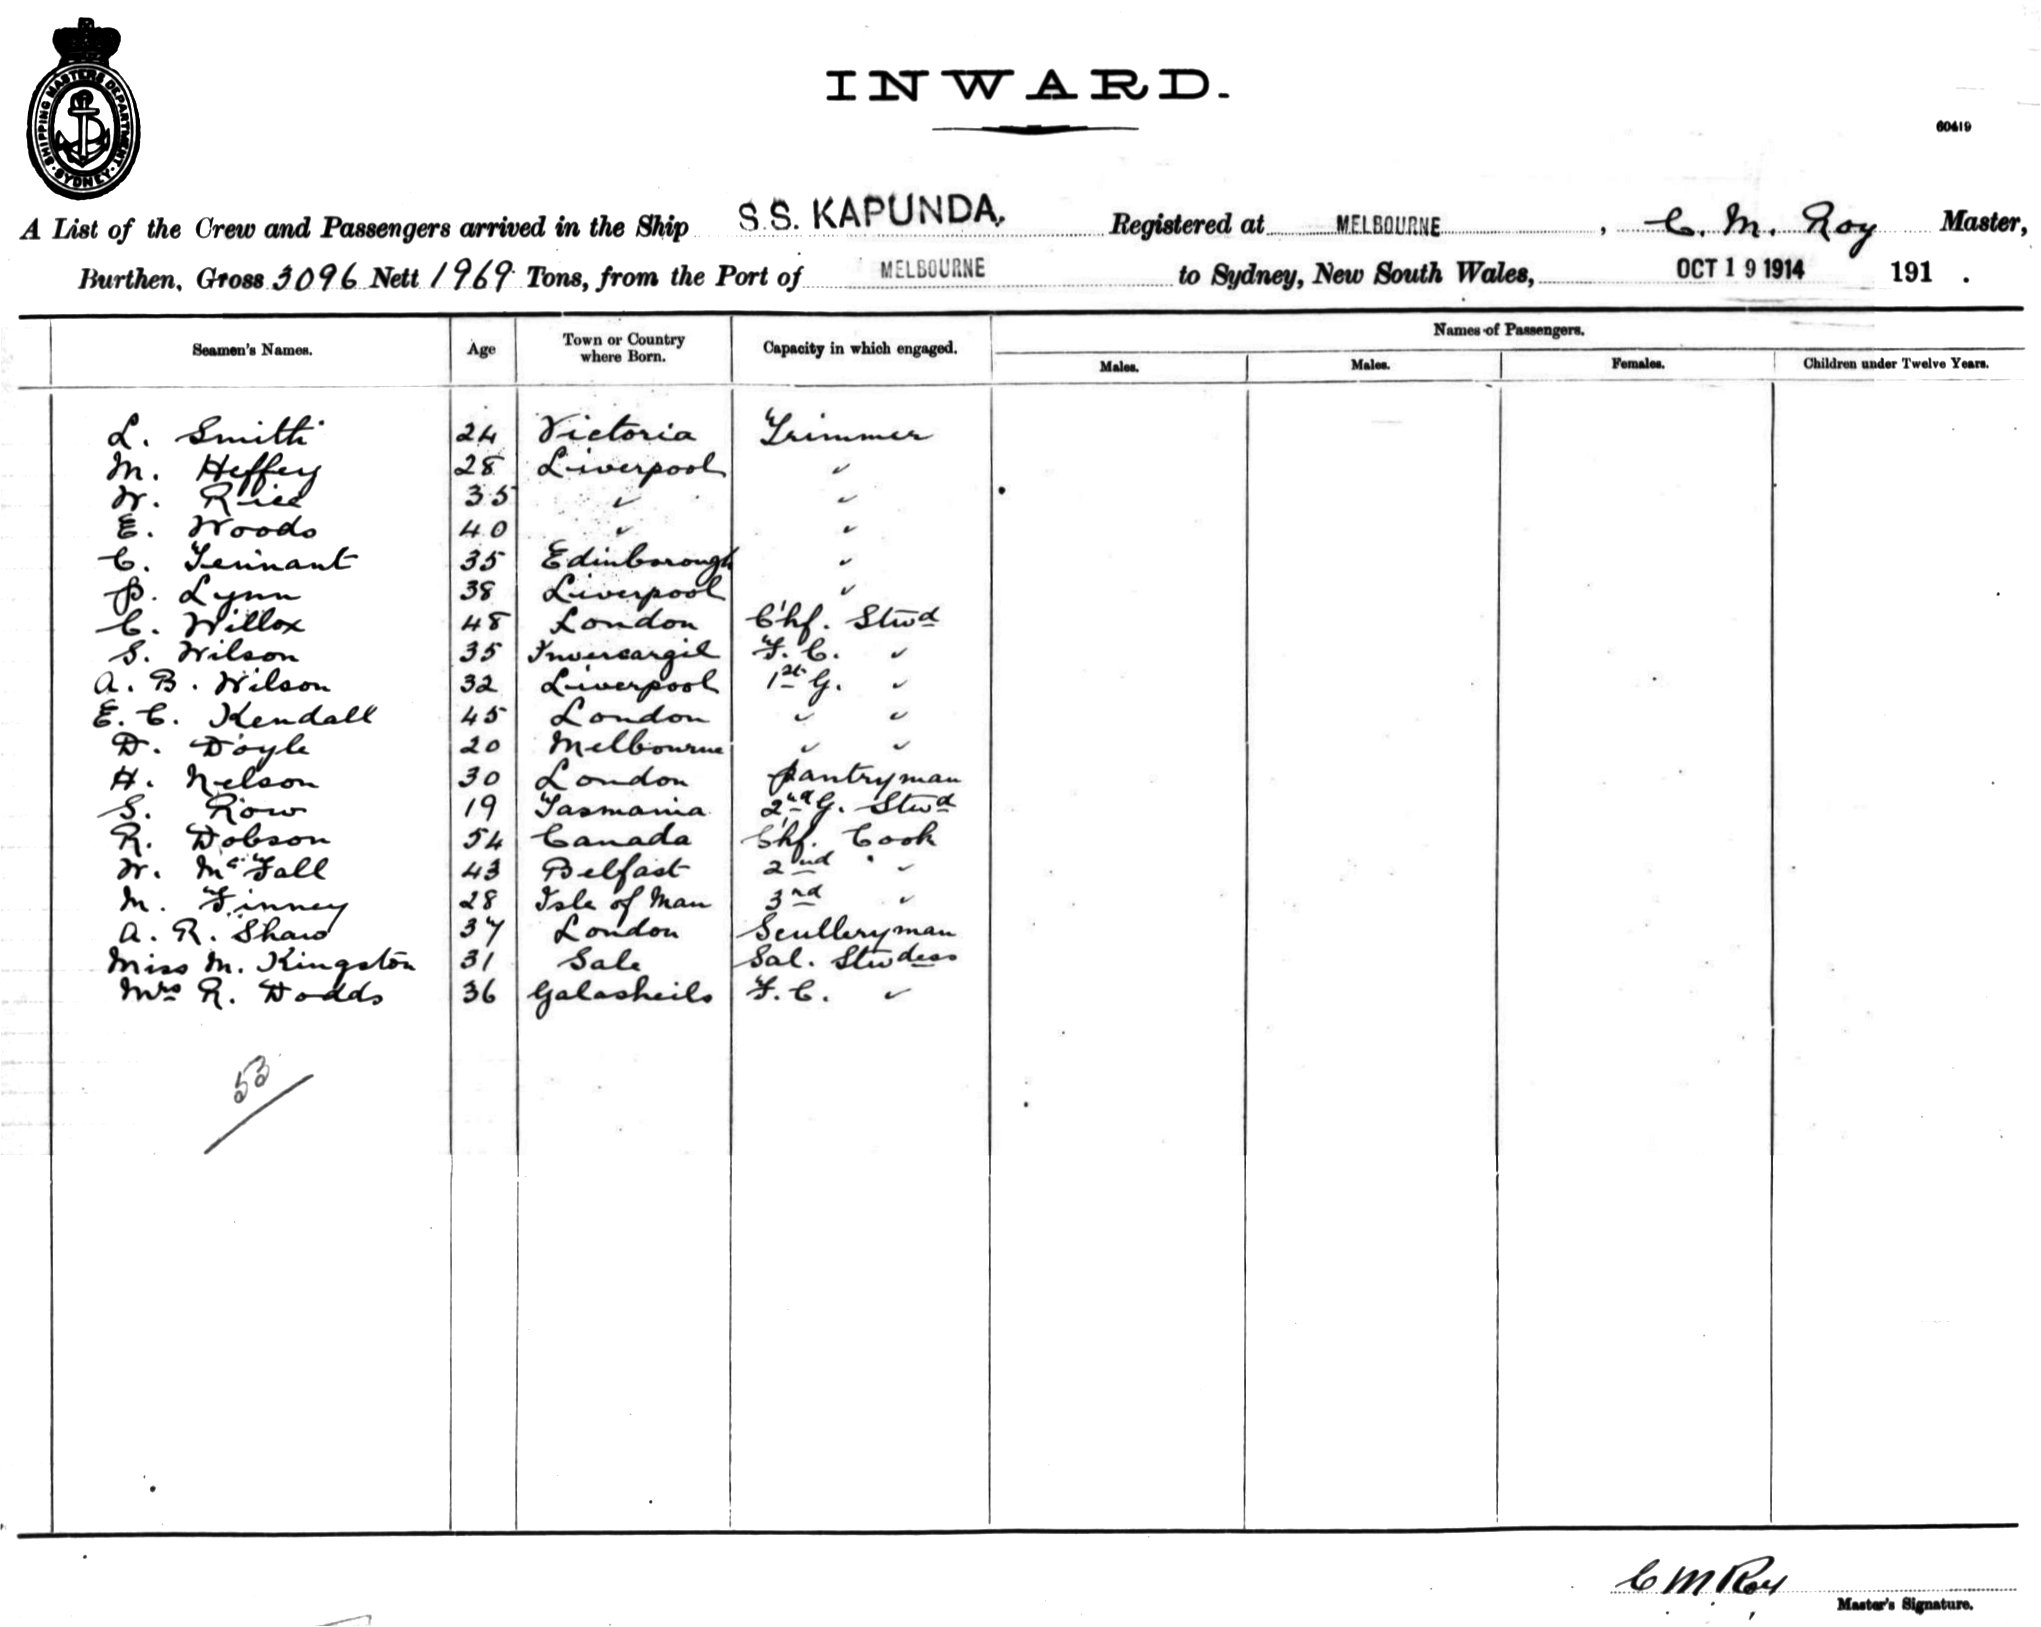 SHIPPING MASTERS DEPARTMENT
SYDNEY
INWARD.
60419
A List of the Crew and Passengers arrived in the Ship S.S. KAPUNDA. Registered at MELBOURNE, C. M. Roy Master,
Burthen, Gross 3096 Nett 1969 Tons, from the Port of MELBOURNE to Sydney, New South Wales, OCT 19 1914 191 .
Seamen's Names. Age Town or Country where Born. Capacity in which engaged. Names of Passengers.
Males. Males. Females. Children under Twelve Years.
L. Smith 24 Victoria Trimmer
M. Heffey 28 Liverpool "
W. Rice 35 " "
E. Woods 40 " "
C. Tennant 35 Edinborough "
P. Lynn 38 Liverpool "
C. Willox 48 London Chf. Stwd
S. Wilson 35 Invercargil F. C. "
A. B. Wilson 32 Liverpool 1st G. "
E. C. Kendall 45 London " "
D. Doyle 20 Melbourne " "
H. Nelson 30 London Pantryman
S. Row 19 Tasmania 2nd G. Stwd
R. Dobson 54 Canada Chf. Cook
W. McFall 43 Belfast 2nd "
M. Finney 28 Isle of Man 3rd "
A. R. Shaw 37 London Sculleryman
Miss M. Kingston 31 Sale Sal. Stwdess
Mrs R. Dodds 36 Galasheils F. C. "
53
C M Roy
Master's Signature.